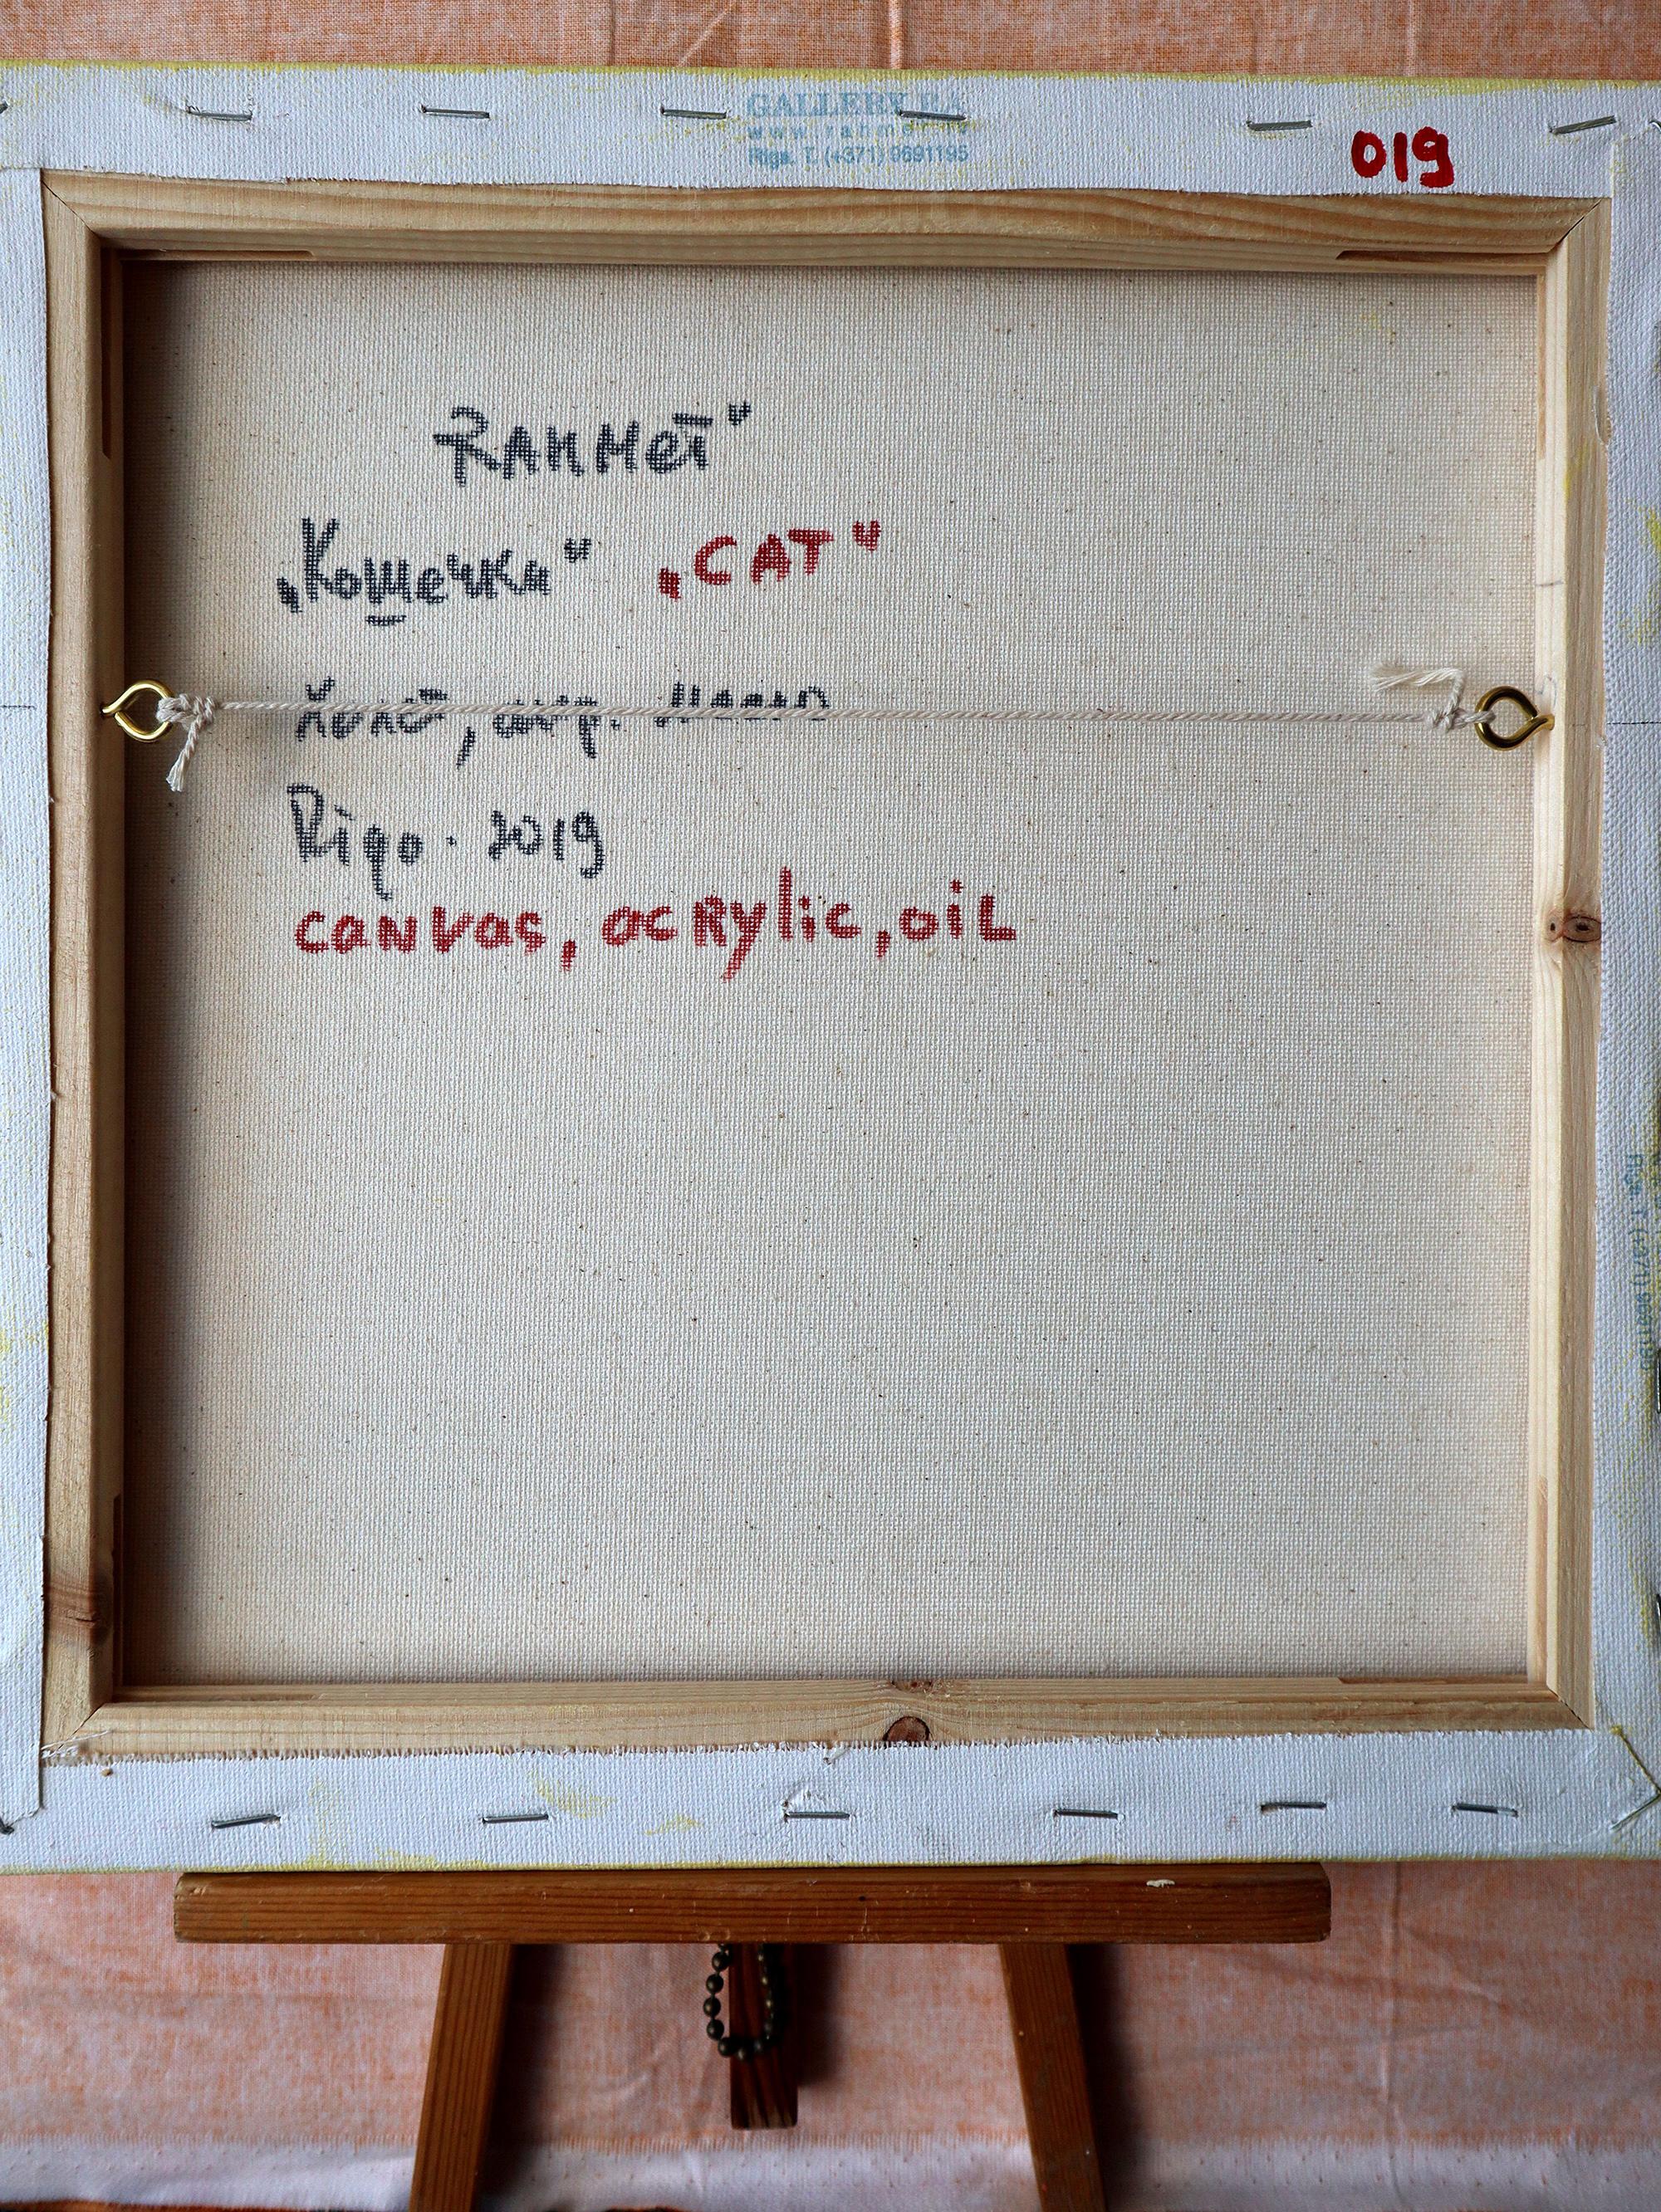 GALLERY RA
Riga. T. (+371) 9691195
019
RAHMET"
„Кошечки" „CAT"
Холст, акр. масло
Rīga. 2019
canvas, acRylic, oiL
Riga. T. (+371) 9691195